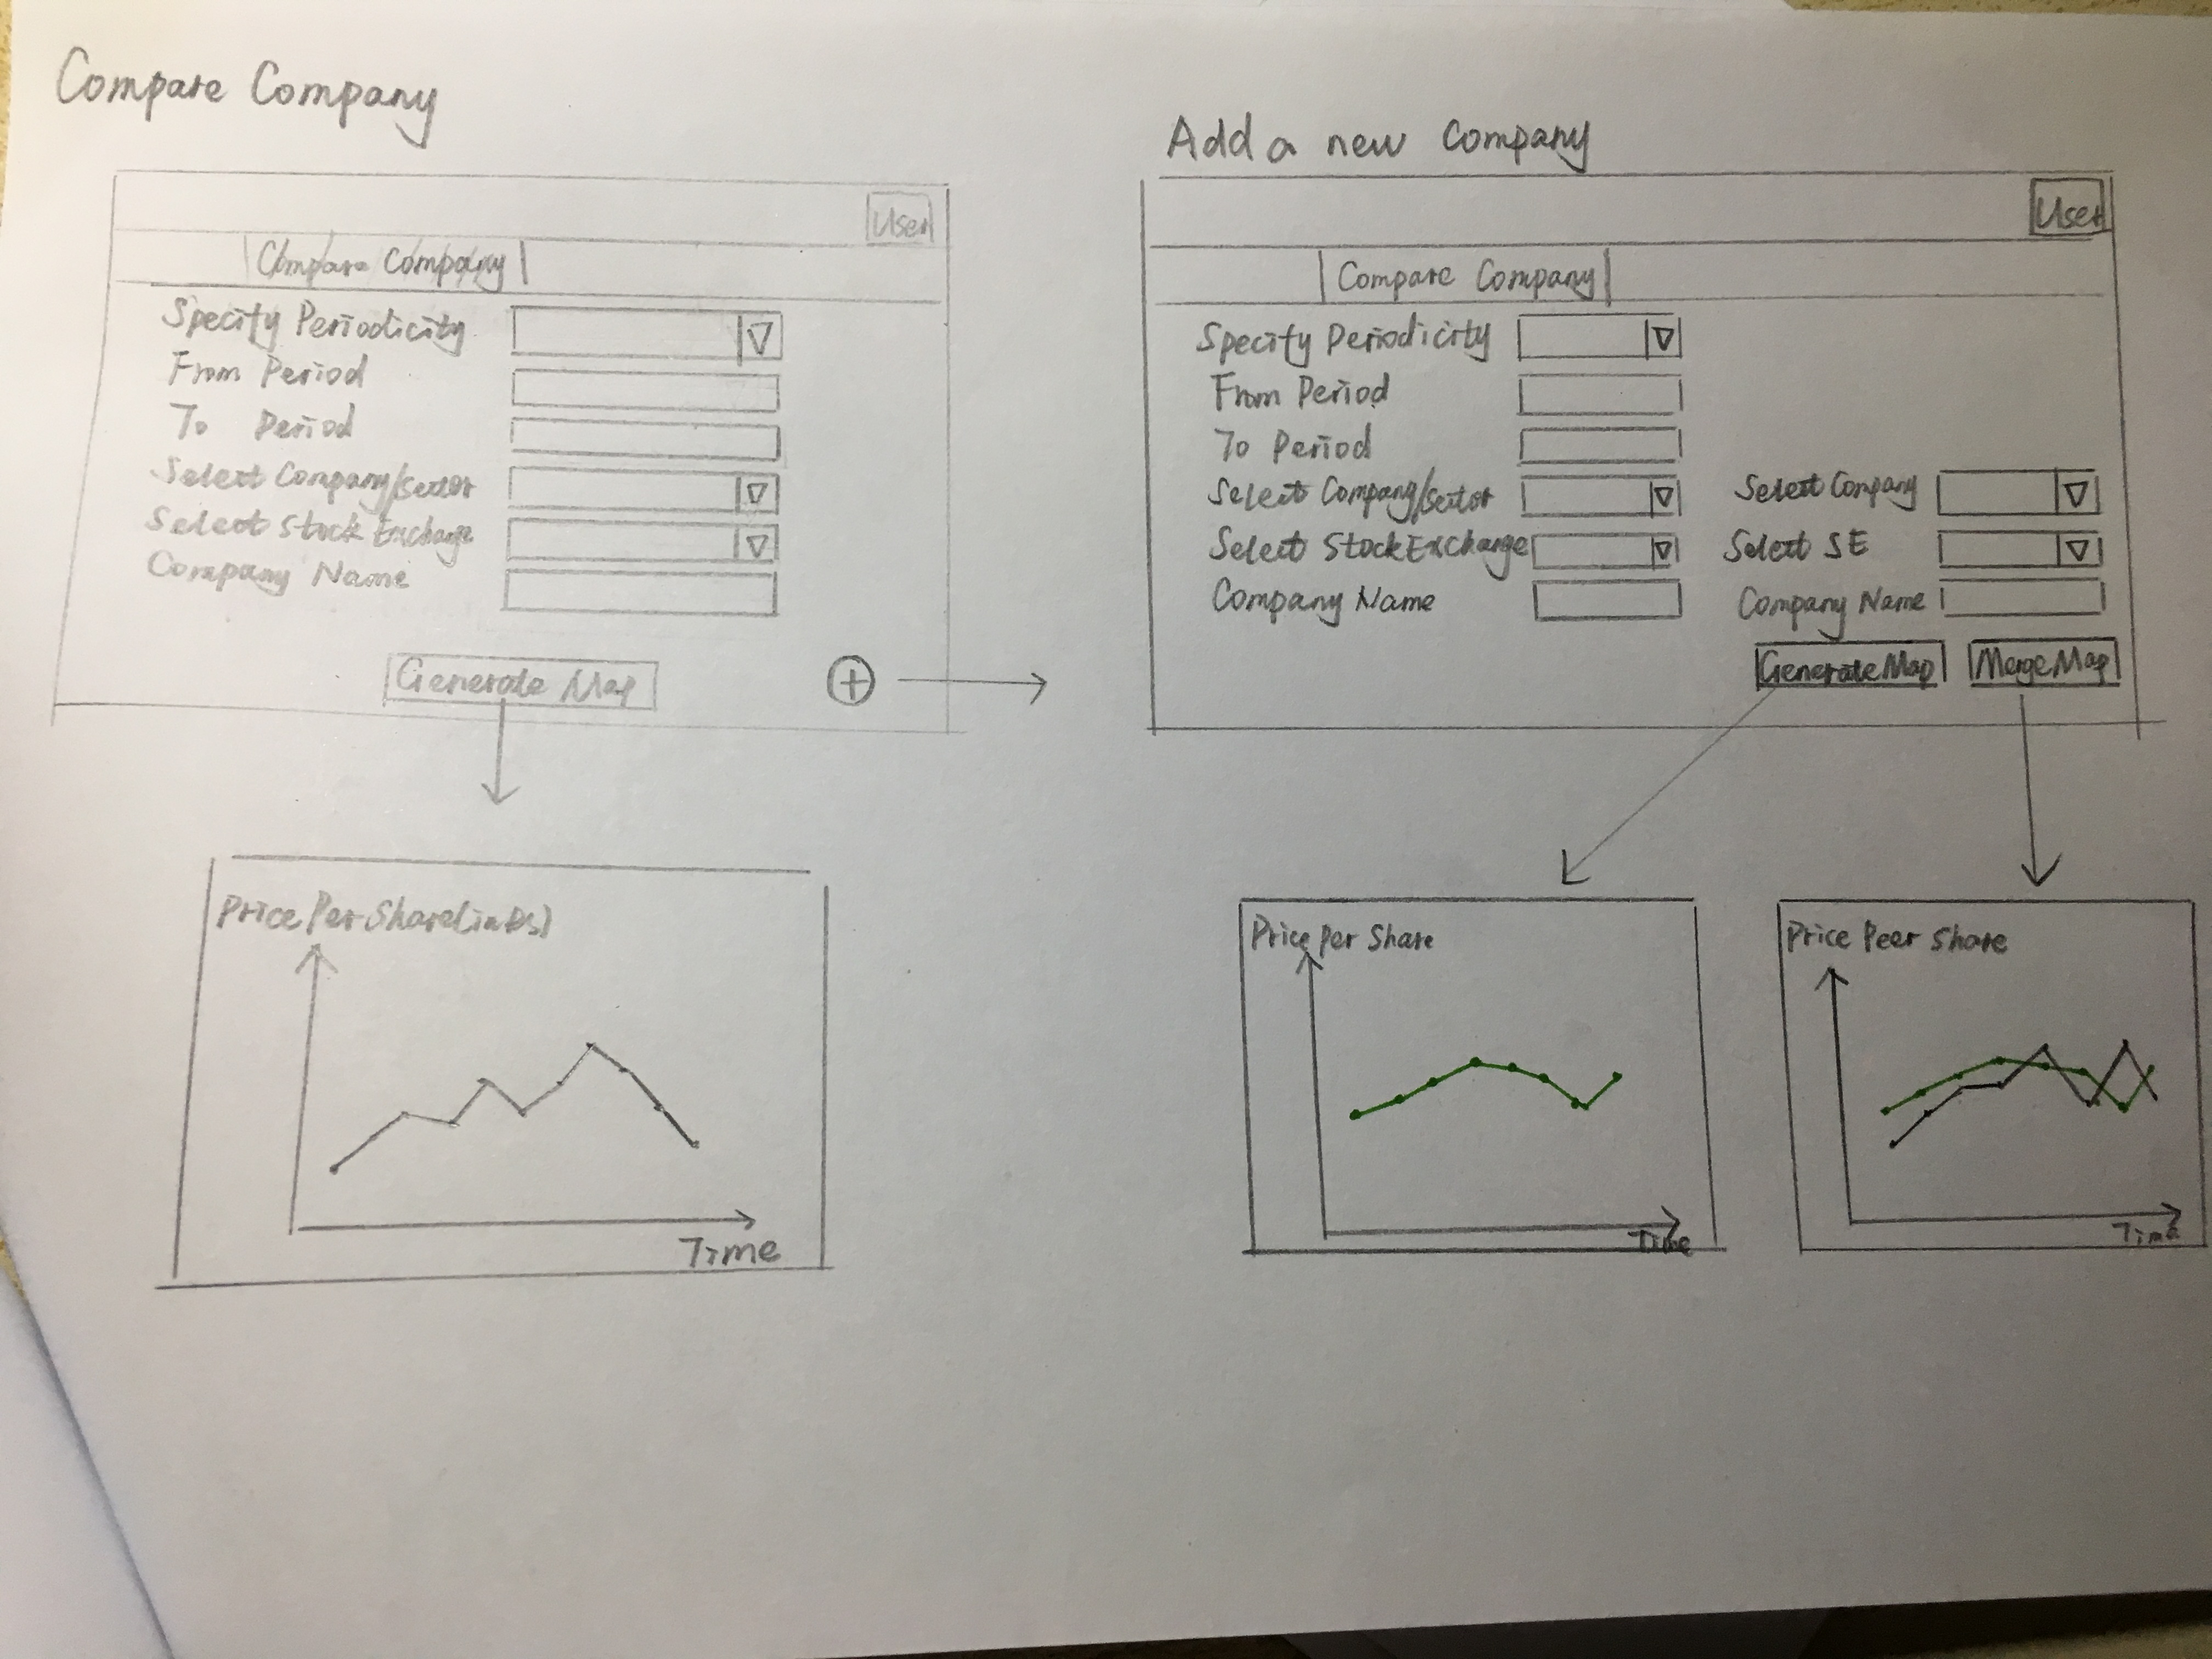 Compare Company
User
Compare Company
Specify Periodicity
From Period
To Period
Select Company/Sector
Select Stock Exchange
Company Name
Generate Map
Price Per Share(in Rs)
Time
Add a new Company
User
Compare Company
Specify Periodicity
From Period
To Period
Select Company/Sector
Select Company
Select Stock Exchange
Select SE
Company Name
Company Name
Generate Map
Merge Map
Price Per Share
Time
Price Peer Share
Time